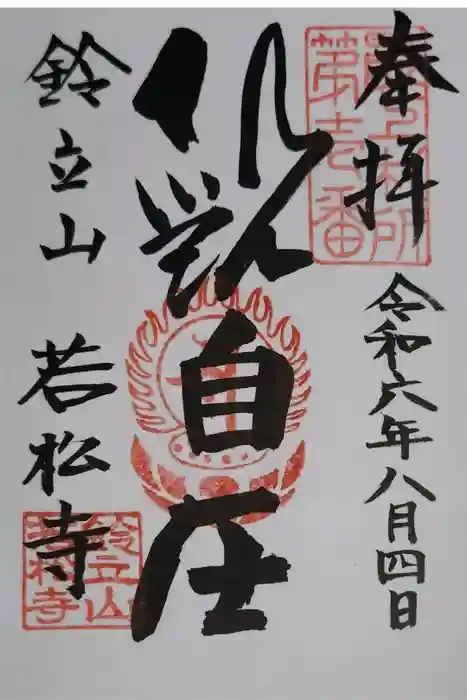 奉拝
令和六年八月四日
最上札所
第壱番
観自在
鈴立山 若松寺
鈴立山
若松寺